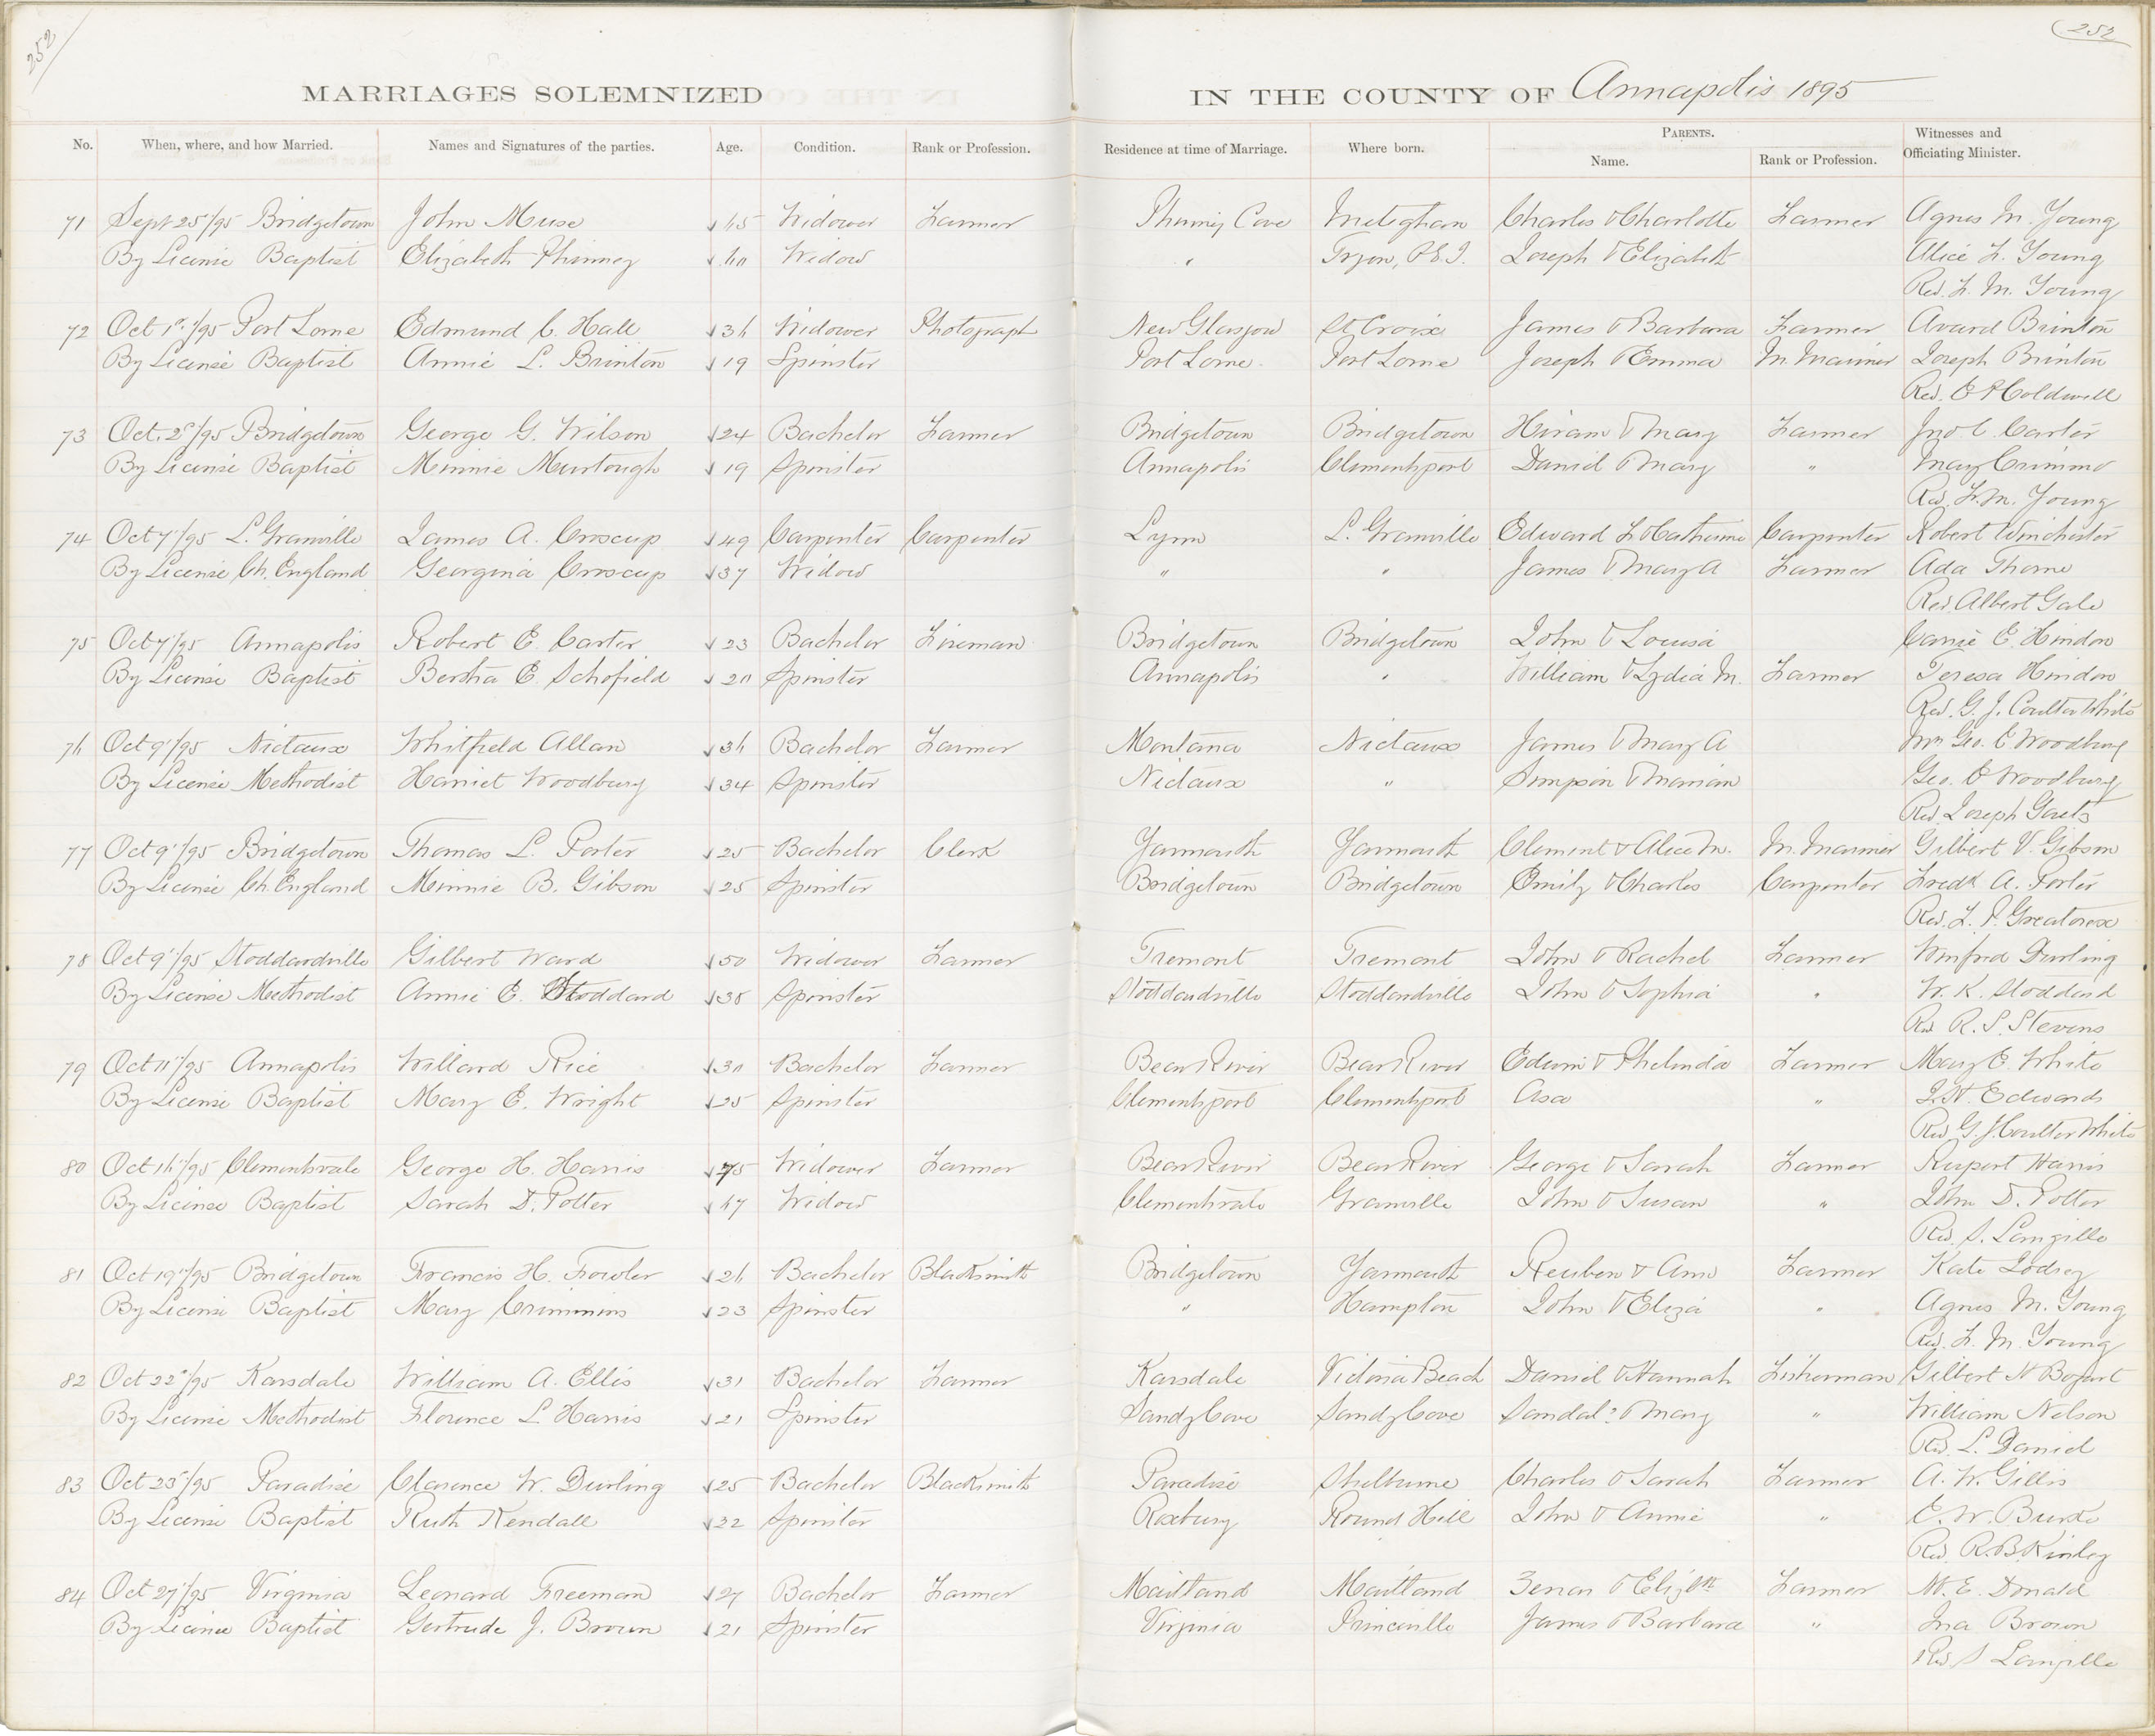 252
252
MARRIAGES SOLEMNIZED IN THE COUNTY OF Annapolis 1895
No. When, where, and how Married. Names and Signatures of the parties. Age. Condition. Rank or Profession. Residence at time of Marriage. Where born. PARENTS. Name. Rank or Profession. Witnesses and Officiating Minister.
71 Sept 25/95 Bridgetown John Muise 65 Widower Farmer Phinney Cove Meteghan Charles & Charlotte Farmer Agnes M. Young
By License Baptist Elizabeth Phinney 60 Widow " Tryon, P.E.I. Joseph & Elizabeth Alice F. Young
Rev. F. M. Young
72 Oct 1st/95 Port Lorne Edmund C. Hall 36 Widower Photograph New Glasgow St Croix James & Barbara Farmer Avard Brinton
By License Baptist Annie L. Brinton 19 Spinster Port Lorne Port Lorne Joseph & Emma M. Mariner Joseph Brinton
Rev. E P Coldwell
73 Oct. 2/95 Bridgetown George G. Wilson 24 Bachelor Farmer Bridgetown Bridgetown Hiram & Mary Farmer Jno. C. Carter
By License Baptist Minnie Murtough 19 Spinster Annapolis Clementsport Daniel & Mary " Mary Crimmo
Rev. F. M. Young
74 Oct 7/95 L. Granville James A. Croscup 49 Carpenter Carpenter Lynn L. Granville Edward L & Catherine Carpenter Robert Winchester
By License Ch. England Georgina Croscup 37 Widow " " James & Mary A Farmer Ada Thorne
Rev. Albert Gale
75 Oct 7/95 Annapolis Robert E. Carter 23 Bachelor Fireman Bridgetown Bridgetown John & Louisa Carrie E. Hindon
By License Baptist Bertha E. Schofield 20 Spinster Annapolis " William & Lydia M. Farmer Teresa Hindon
Rev. G. J. Coulter White
76 Oct 9/95 Nictaux Whitfield Allan 36 Bachelor Farmer Montana Nictaux James & Mary A Mrs Geo. E Woodbury
By License Methodist Harriet Woodbury 34 Spinster Nictaux " Simpson & Mariam Geo. E Woodbury
Rev Joseph Gaetz
77 Oct 9/95 Bridgetown Thomas L. Porter 25 Bachelor Clerk Yarmouth Yarmouth Clement & Alice M. M. Mariner Gilbert V. Gibson
By License Ch. England Minnie B. Gibson 25 Spinster Bridgetown Bridgetown Emily & Charles Carpenter Fredk A. Porter
Rev. F. P. Greatorex
78 Oct 9/95 Stoddardville Gilbert Ward 50 Widower Farmer Tremont Tremont John & Rachel Farmer Winfred Durling
By License Methodist Annie E. Stoddard 38 Spinster Stoddardville Stoddardville John & Sophia " W. K. Stoddard
Rev R. S. Stevens
79 Oct 11/95 Annapolis Willard Rice 30 Bachelor Farmer Bear River Bear River Edwin & Phelinda Farmer Mary E. White
By License Baptist Mary E. Wright 25 Spinster Clementsport Clementsport Asa " J. H. Edwards
Rev G. J. Coulter White
80 Oct 16/95 Clementsvale George H. Harris 75 Widower Farmer Bear River Bear River George & Sarah Farmer Rupert Harris
By License Baptist Sarah D. Potter 67 Widow Clementsvale Granville John & Susan " John D. Potter
Rev. S. Langille
81 Oct 19/95 Bridgetown Francis H. Fowler 26 Bachelor Blacksmith Bridgetown Yarmouth Reuben & Ann Farmer Kate Lodsey
By License Baptist Mary Crimmins 23 Spinster " Hampton John & Eliza " Agnes M. Young
Rev. F. M. Young
82 Oct 22/95 Karsdale William A. Ellis 31 Bachelor Farmer Karsdale Victoria Beach Daniel & Hannah Fisherman Gilbert H Bogart
By License Methodist Florence L Harris 21 Spinster Sandy Cove Sandy Cove Sandal? & Mary " William Nelson
Rev. L. Daniel
83 Oct 23/95 Paradise Clarence W. Durling 25 Bachelor Blacksmith Paradise Shelburne Charles & Sarah Farmer A. W. Gillis
By License Baptist Ruth Kendall 32 Spinster Roxbury Round Hill John & Annie " E. W. Burke
Rev. R. B. Kinley
84 Oct 27/95 Virginia Leonard Freeman 27 Bachelor Farmer Maitland Maitland Zenas & Elizbth Farmer W. E. Donald
By License Baptist Gertrude J. Brown 21 Spinster Virginia Princeville James & Barbara " Ina Brown
Rev. S Langille